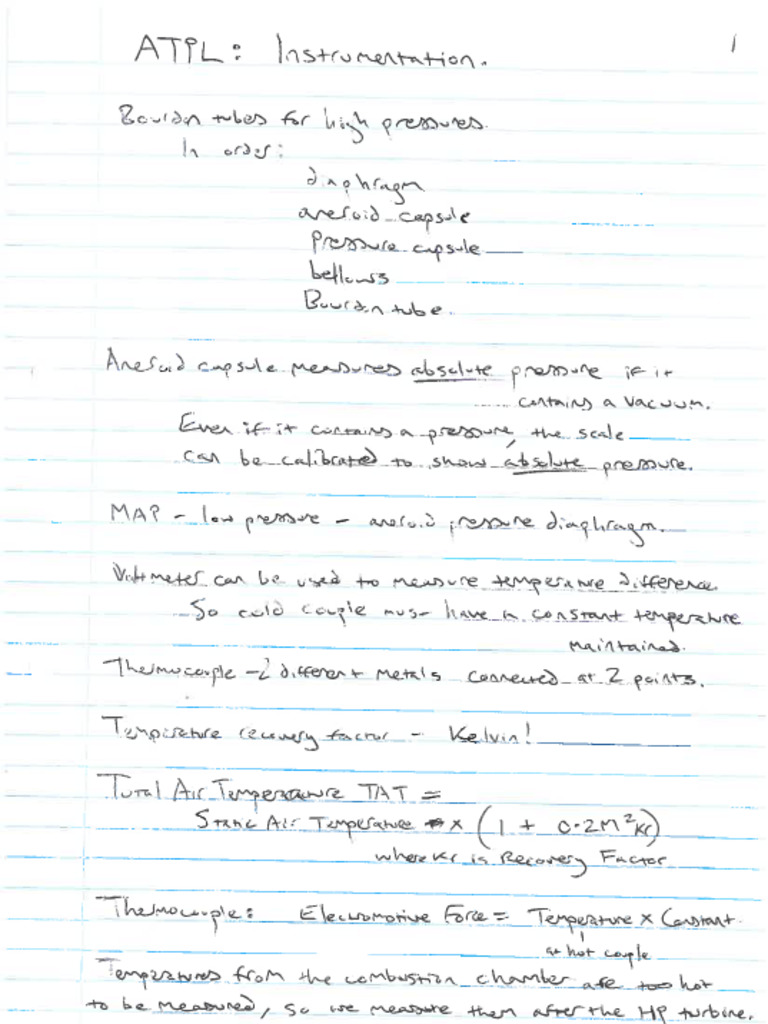 1
ATPL: Instrumentation.
Bourdon tubes for high pressures.
In order:
diaphragm
aneroid capsule
pressure capsule
bellows
Bourdon tube.
Aneroid capsule measures absolute pressure if it
contains a vacuum.
Even if it contains a pressure, the scale
can be calibrated to show absolute pressure.
MAP - low pressure - aneroid pressure diaphragm.
Voltmeter can be used to measure temperature difference
So cold couple must have a constant temperature
maintained.
Thermocouple - 2 different metals connected at 2 points.
Temperature recovery factor - Kelvin!
Total Air Temperature TAT =
Static Air Temperature × (1 + 0.2M²Kr)
where Kr is Recovery Factor
Thermocouple: Electromotive Force = Temperature × Constant.
at hot couple
Temperatures from the combustion chamber are too hot
to be measured, so we measure them after the HP turbine.